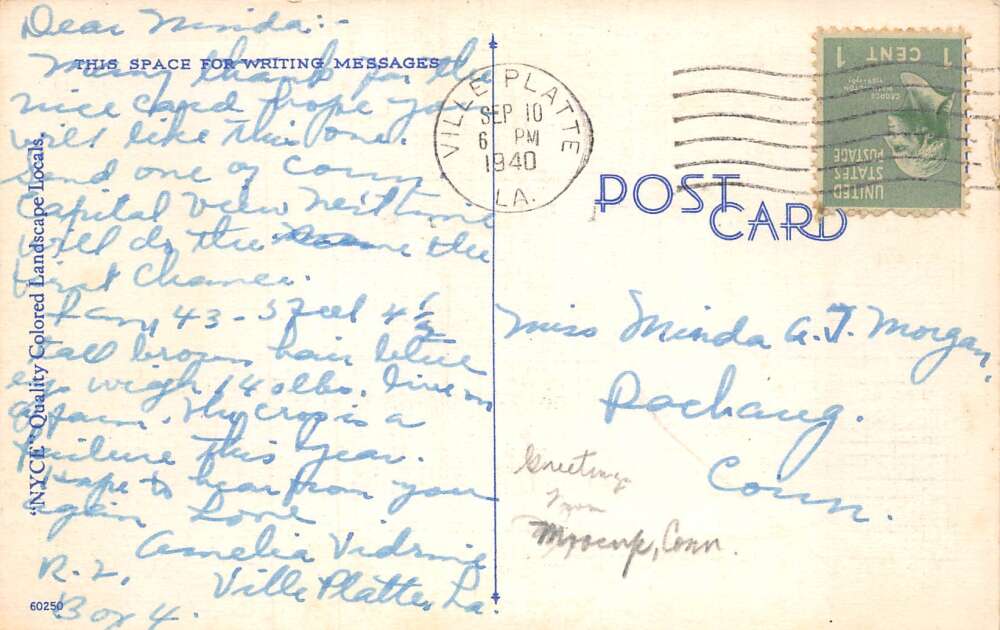 Dear Minda:-
THIS SPACE FOR WRITING MESSAGES
Many thanks for the
nice card hope you
will like this one.
Send one of Conn
Capital View next time
will do the same the
first chance.
I am 43 - 5 feet 4 1/2
tall brown hair blue
eyes weigh 140 lbs. live on
a farm. My crop is a
failure this year.
Hope to hear from you
again Love
Amelia Vidrine
R.2. Ville Platte, La.
Box 4.
60250
"NYCE" Quality Colored Landscape Locals.
VILLE PLATTE
SEP 10
6 PM
1940
LA.
1 CENT 1
GEORGE
WASHINGTON
UNITED
STATES
POSTAGE
POST
CARD
Miss Minda A. T. Morgan,
Pachaug.
Conn.
Greetings
from
Moosup, Conn.